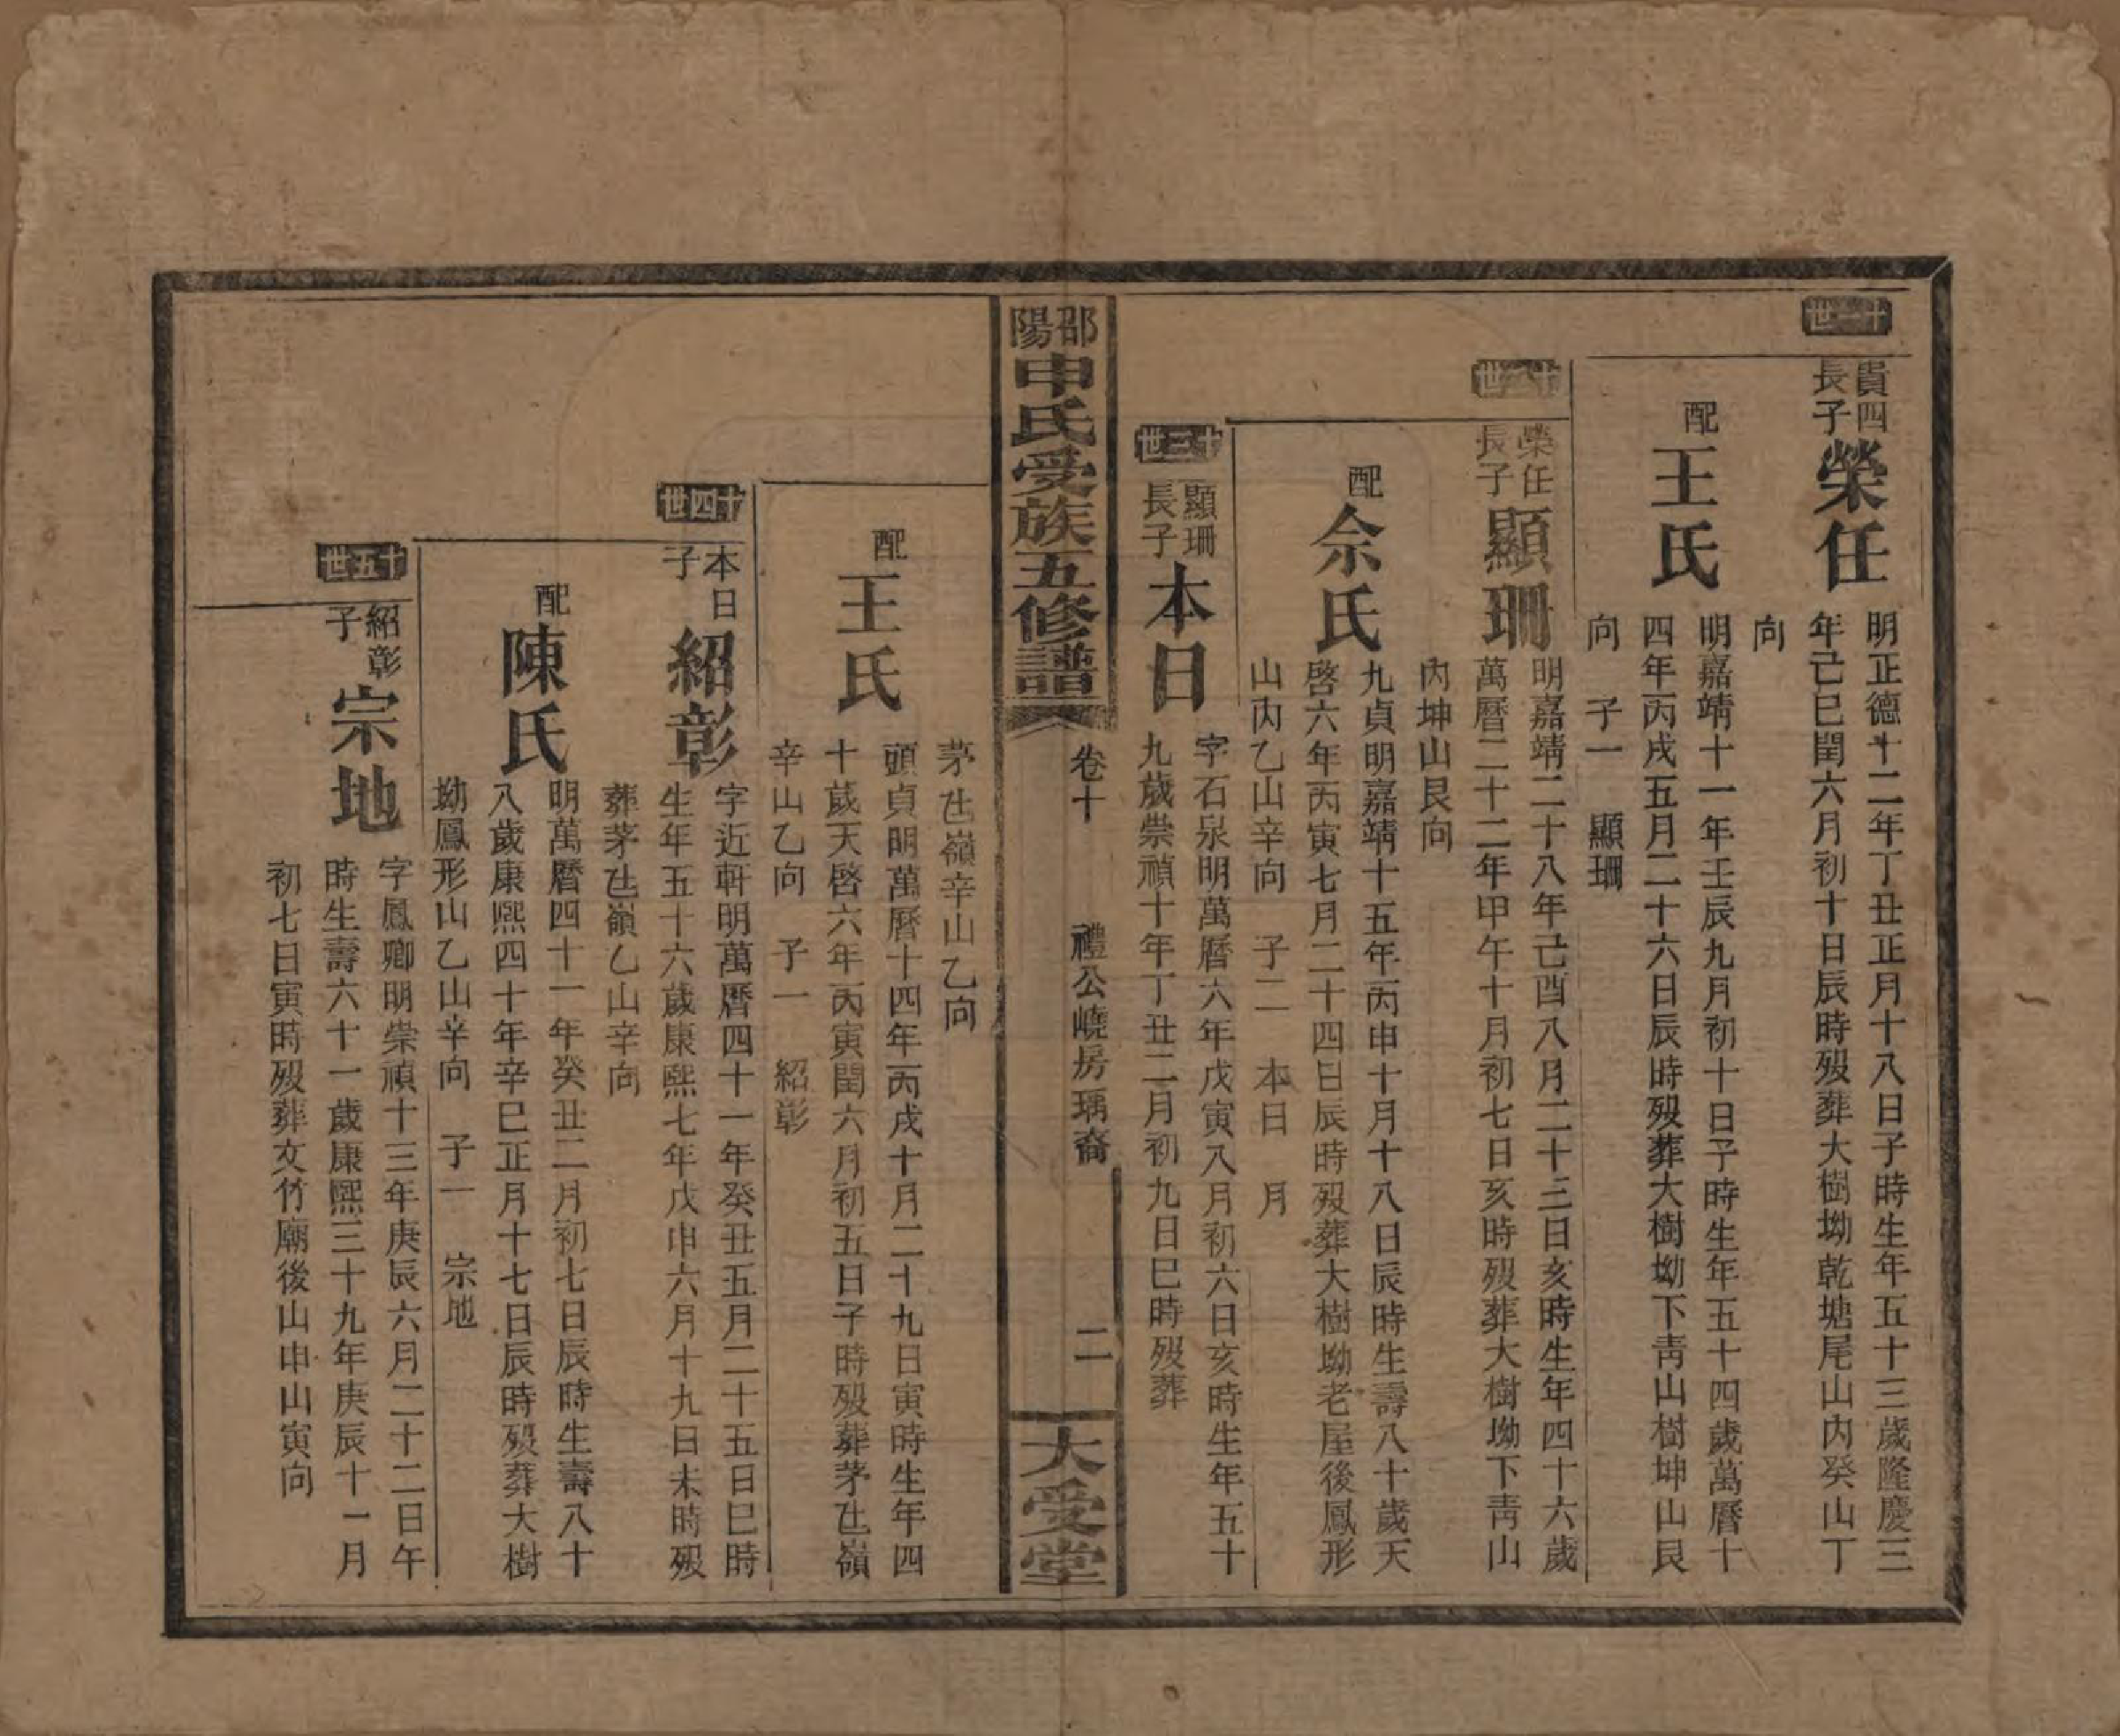 十一世
貴四
長子
榮任
明正德十二年丁丑正月十八日子時生年五十三歲隆慶三
年己巳閏六月初十日辰時歿葬大樹坳乾塘尾山內癸山丁
向
配
王氏
明嘉靖十一年壬辰九月初十日子時生年五十四歲萬曆十
四年丙戌五月二十六日辰時歿葬大樹坳下靑山樹坤山艮
向 子一 顯珊
十二世
榮任
長子
顯珊
明嘉靖二十八年己酉八月二十三日亥時生年四十六歲
萬曆二十二年甲午十月初七日亥時歿葬大樹坳下靑山
內坤山艮向
配
佘氏
九貞明嘉靖十五年丙申十月十八日辰時生壽八十歲天
啓六年丙寅七月二十四日辰時歿葬大樹坳老屋後鳳形
山內乙山辛向 子二 本日 月
十三世
顯珊
長子
本日
字石泉明萬曆六年戊寅八月初六日亥時生年五十
九歲崇禎十年丁丑二月初九日巳時歿葬
邵陽
申氏受族五修譜
卷十
禮公嶢房瑀裔
二
大受堂
茅乜嶺辛山乙向
配
王氏
頭貞明萬曆十四年丙戌十月二十九日寅時生年四
十歲天啓六年丙寅閏六月初五日子時歿葬茅乜嶺
辛山乙向 子一 紹彰
十四世
本日
子
紹彰
字近軒明萬曆四十一年癸丑五月二十五日巳時
生年五十六歲康熙七年戊申六月十九日未時歿
葬茅乜嶺乙山辛向
配
陳氏
明萬曆四十一年癸丑二月初七日辰時生壽八十
八歲康熙四十年辛巳正月十七日辰時歿葬大樹
坳鳳形山乙山辛向 子一 宗地
十五世
紹彰
子
宗地
字鳳卿明崇禎十三年庚辰六月二十二日午
時生壽六十一歲康熙三十九年庚辰十一月
初七日寅時歿葬文竹廟後山申山寅向